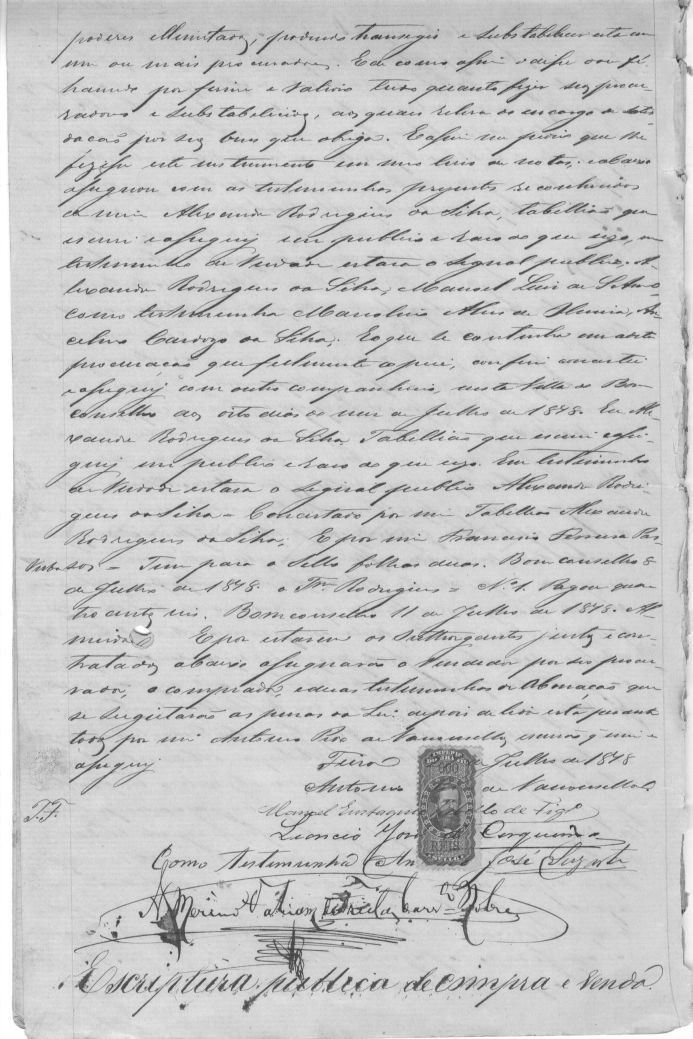 poderes illimitados, podendo transegir e substabelecer esta em
um ou mais procuradores. E de como assim o disse
havendo por firme e valioso tudo quanto fizer seu procu-
rador e substabelecidos, aos quais releva do encargo de satis
dação por seus bens que obriga. E assim me pedio que lhe
fizesse este instrumento em meu livro de notas, e abaixo
assignou com as testemunhas presentes reconhecidos
de mim Alexandre Rodrigues da Silva, tabellião que
escrevi e assignei em publico e raso de que uso, em
testemunho de verdade estava o signal publico. A-
lexandre Rodrigues da Silva, Manoel Luis de
como testemunha Marcolino Alves de Almeida, An-
celmo Cardozo da Silva. E o que se continha em a dita
procuração que fielmente copiei, conferi concertei
e assignei com outro companheiro, nesta Villa do Bom
conselho aos oito dias do mez de Julho de 1878. Eu Ale-
xandre Rodrigues da Silva, Tabellião que escrevi e assi-
gnei em publico e raso de que uso. Em testemunho
de verdade estava o signal publico Alexandre Rodri-
gues da Silva - Concertado por mim Tabellião Alexandre
Rodrigues da Silva, E por mim Francisco Ferreira Pas-
sos - Tem para o Sello folhas duas. Bom conselho 8
de Julho de 1878. o Rodrigues = Nº 1. Pagou qua-
trocentos reis. Bom conselho 11 de Julho de 1878. Al-
meida E por estarem os outhorgantes justos e con-
tratados abaixo assignarão o Vendedor por seu procu-
rador, o comprador e duas testemunhas de abonação que
se sugeitarão as penas da Lei depois de lida esta perante
todos por mim Antonio de Vasconcellos escrivão que escrevi e
assignei.
Feira Julho de 1878
Antonio de Vasconcellos
T.F.
Manoel
Leoncio José Cerqueira
Como testemunha An José
A Moreno
IMPERIO DO BRAZIL
200
REIS
Escriptura publica de compra e venda.